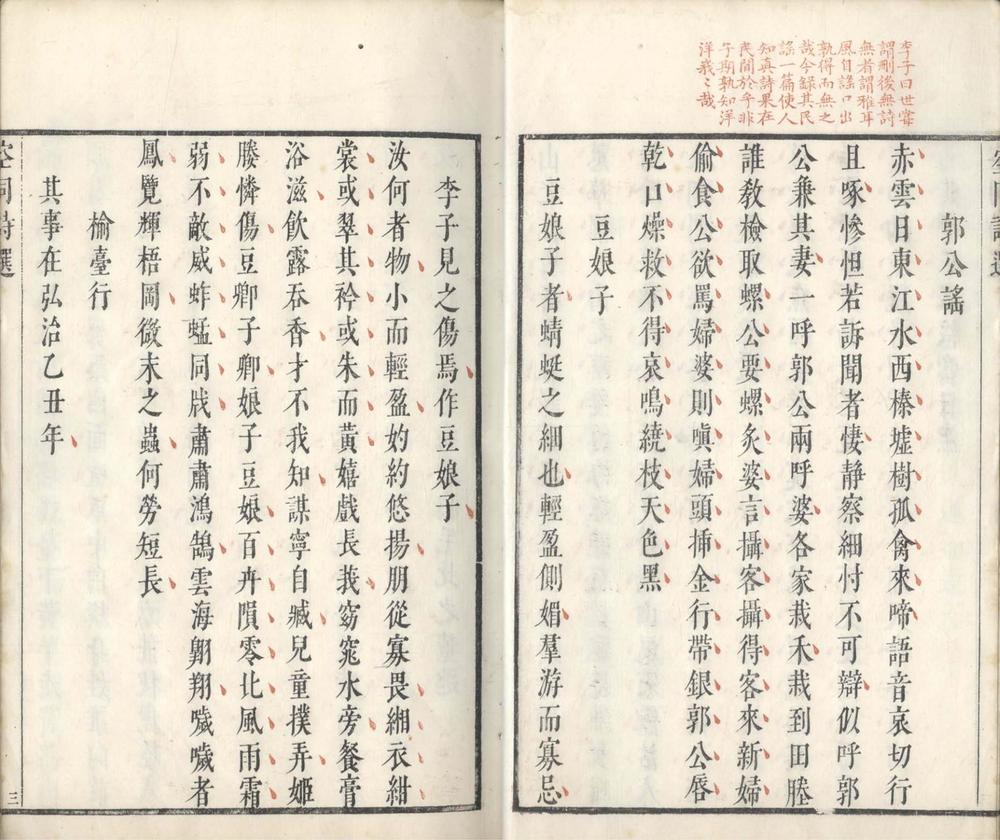 李子曰世嘗
謂刪後無詩
無者謂雅耳
風自謠口出
孰得而無之
哉今錄其民
謠一篇使人
知真詩果在
民間於乎非
子期孰知洋
洋峩〻哉
郭公謠
赤雲日東江水西榛墟樹孤禽來啼語音哀切行
且啄慘怛若訴聞者悽靜察細忖不可辯似呼郭
公兼其妻一呼郭公兩呼婆各家栽禾栽到田塍
誰教檢取螺公要螺炙婆言攝客攝得客來新婦
偷食公欲罵婦婆則嗔婦頭揷金行帶銀郭公唇
乾口燥救不得哀鳴繞枝天色黑
豆娘子
豆娘子者蜻蜓之細也輕盈側媚羣游而寡忌
李子見之傷焉作豆娘子
汝何者物小而輕盈妁約悠揚朋從寡畏緗衣紺
裳或翠其衿或朱而黃嬉戲長莪窈窕水旁餐膏
浴滋飲露吞香才不我知謀寧自臧兒童撲弄姬
媵憐傷豆卿子卿娘子豆娘百卉隕零北風雨霜
弱不敵威蚱蜢同戕肅肅鴻鵠雲海翺翔噦噦者
鳳覽輝梧岡微末之蟲何勞短長
榆臺行
其事在弘治乙丑年
空同詩選
三